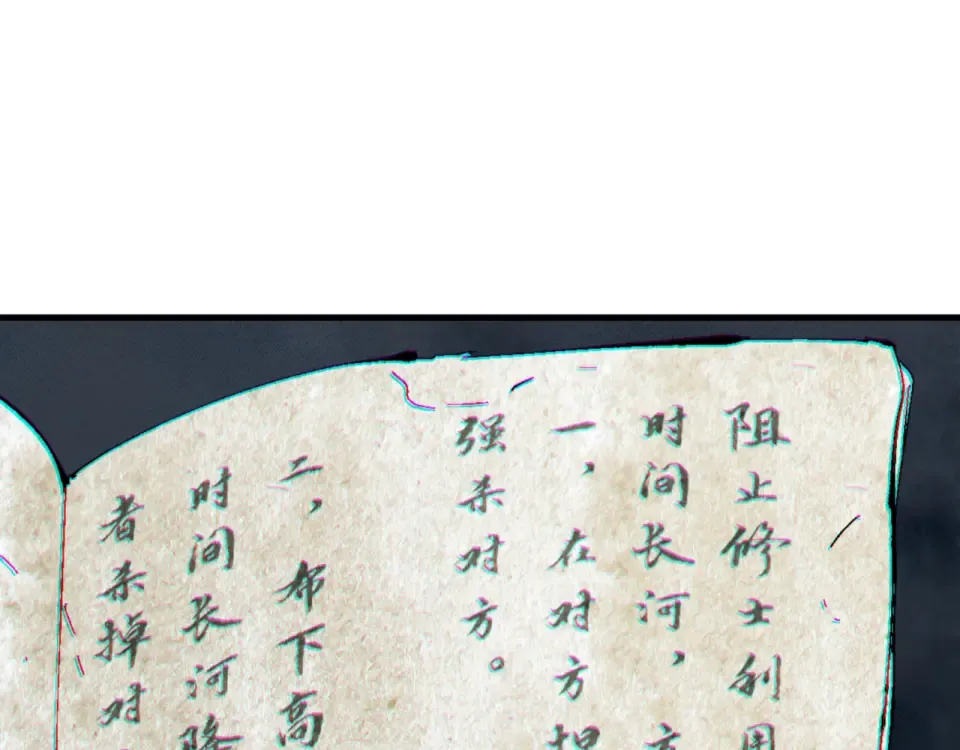 阻止修士利用
时间长河，方
一，在对方捏
强杀对方。
二，布下高
时间长河降
者杀掉对